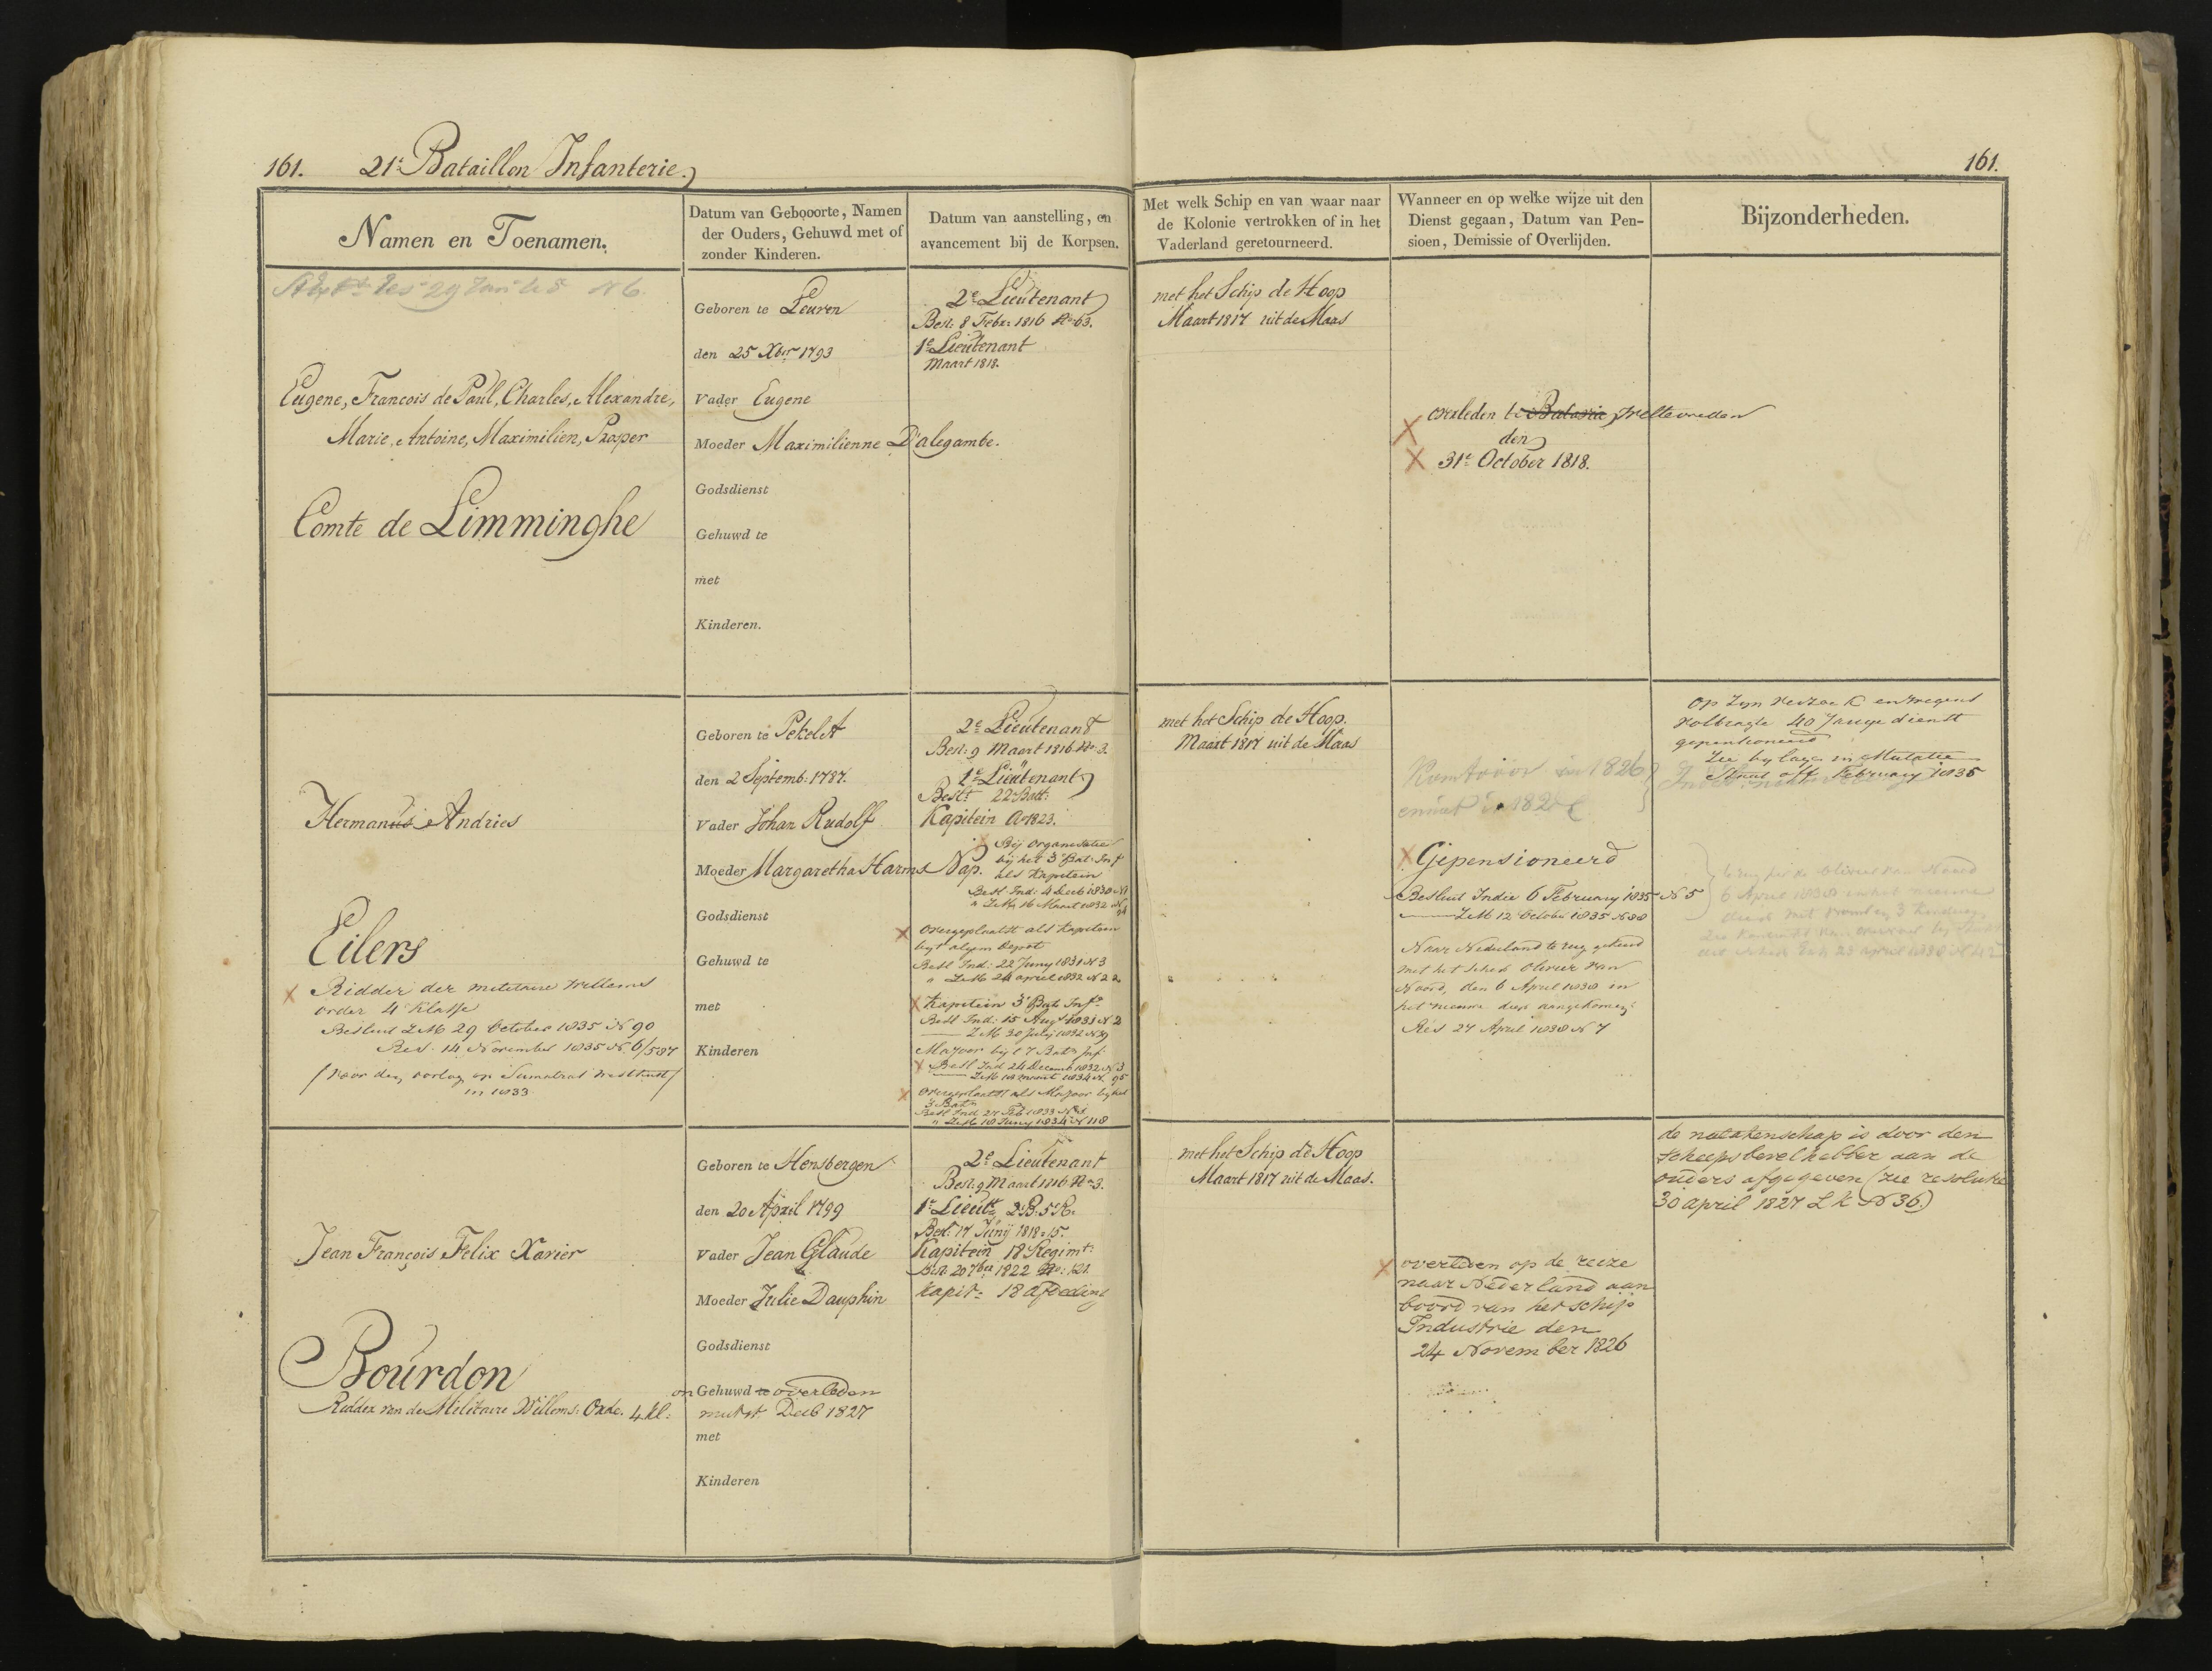 161. 21e Bataillon Infanterie.
161.
Namen en Toenamen.
Datum van Gebooorte, Namen
der Ouders, Gehuwd met of
zonder Kinderen.
Datum van aanstelling, en
avancement bij de Korpsen.
Met welk Schip en van waar naar
de Kolonie vertrokken of in het
Vaderland geretourneerd.
Wanneer en op welke wijze uit den
Dienst gegaan, Datum van Pen-
sioen, Demissie of Overlijden.
Bijzonderheden.
29 N 6
Eugene, Francois de Paul, Charles, Alexandre,
Marie, Antoine, Maximilien, Prosper
Comte de Limminghe
Geboren te Leuven
den 25 Xber 1793
Vader Eugene
Moeder Maximilienne D'alegambe.
Godsdienst
Gehuwd te
met
Kinderen.
2e Lieutenant
Besl: 8 Febr: 1816 No 63.
1e Lieutenant
Maart 1818.
met het Schip de Hoop
Maart 1817 uit de Maas
overleden te Batavia Weltevreden
den
31e October 1818.
Hermanus Andries
Eilers
Ridder der militaire Willems
order 4e Klasse
Besluit ZM 29 October 1835 N 90
Res. 14 November 1835 N. 6/587
/voor den oorlog op Sumatras Westkust/
in 1833
Geboren te PekelA
den 2 Septemb: 1787.
Vader Johan Rudolf
Moeder Margaretha Harms Nap.
Godsdienst
Gehuwd te
met
Kinderen
2e Lieutenant
Besl: 9 Maart 1816 No 3.
1e Lieutenant
Beslt 22 Batt:
Kapitein Ao 1823.
Bij organisatie
bij het 3e Bat: Inf
als Kapitein
Besl Ind: 4 Decb 1830 N 1
" ZM 16 Maart 1832 N
overgeplaatst als Kapitein
by't algem Depot
Besl Ind: 22 Juny 1831 N 3
" ZM 24 april 1832 N 22
Kapitein 3e Bat Inf
Besl Ind: 15 Augt 1831 N 2
ZM 30 July 1832 N 39
Majoor bij t 7 Bat Inf
Besl Ind 24 Decemb 1832 N 3
ZM 18 maart 1834 N. 95
overgeplaatst als Majoor by het
3 Bat
Besl Ind 27 Feb 1833 N
" ZM 18 Juny 1834 N 118
met het Schip de Hoop.
Maart 1817 uit de Maas
Kantoor in 1826
Gepensioneerd
Besluit Indie 6 February 1835 N 5
ZM 12 October 1835 N 88
Naar Nederland te rug gekeerd
met het schip Olivier van
Noord, den 6 April 1838 in
het nieuwe diep aangekomen
Res 27 April 1838 N 7
Op zyn verzoek en wegens
volbragte 40 Jarige dienst
gepensioneerd
Zie bylage in Mutatie
Staat off February 1835
6 April 1838 in het nieuwe
diep met
Jean François Felix Xavier
Bourdon
Ridder van de Militaire Willems: Orde. 4 kl:
Geboren te Hensbergen
den 20 April 1799
Vader Jean Glaude
Moeder Julie Dauphin
Godsdienst
Gehuwd te overleden
mutst Decb 1827
met
Kinderen
2e Lieutenant
Besl: 9 Maart 1816 No 3.
1e Lieut: 2.B. 5.R.
Besl: 17 Junij 1818: 15.
Kapitein 18 Regimt:
Besl: 20 7ber 1822 No: 121.
Kapit: 18 afdeeling
met het Schip de Hoop
Maart 1817 uit de Maas.
overleden op de reize
naar Nederland aan
boord van het schip
Industrie den
24 November 1826
de nalatenschap is door den
scheepsbevelhebber aan de
ouders afgegeven (zie resolutie
30 april 1827 L K N 36)